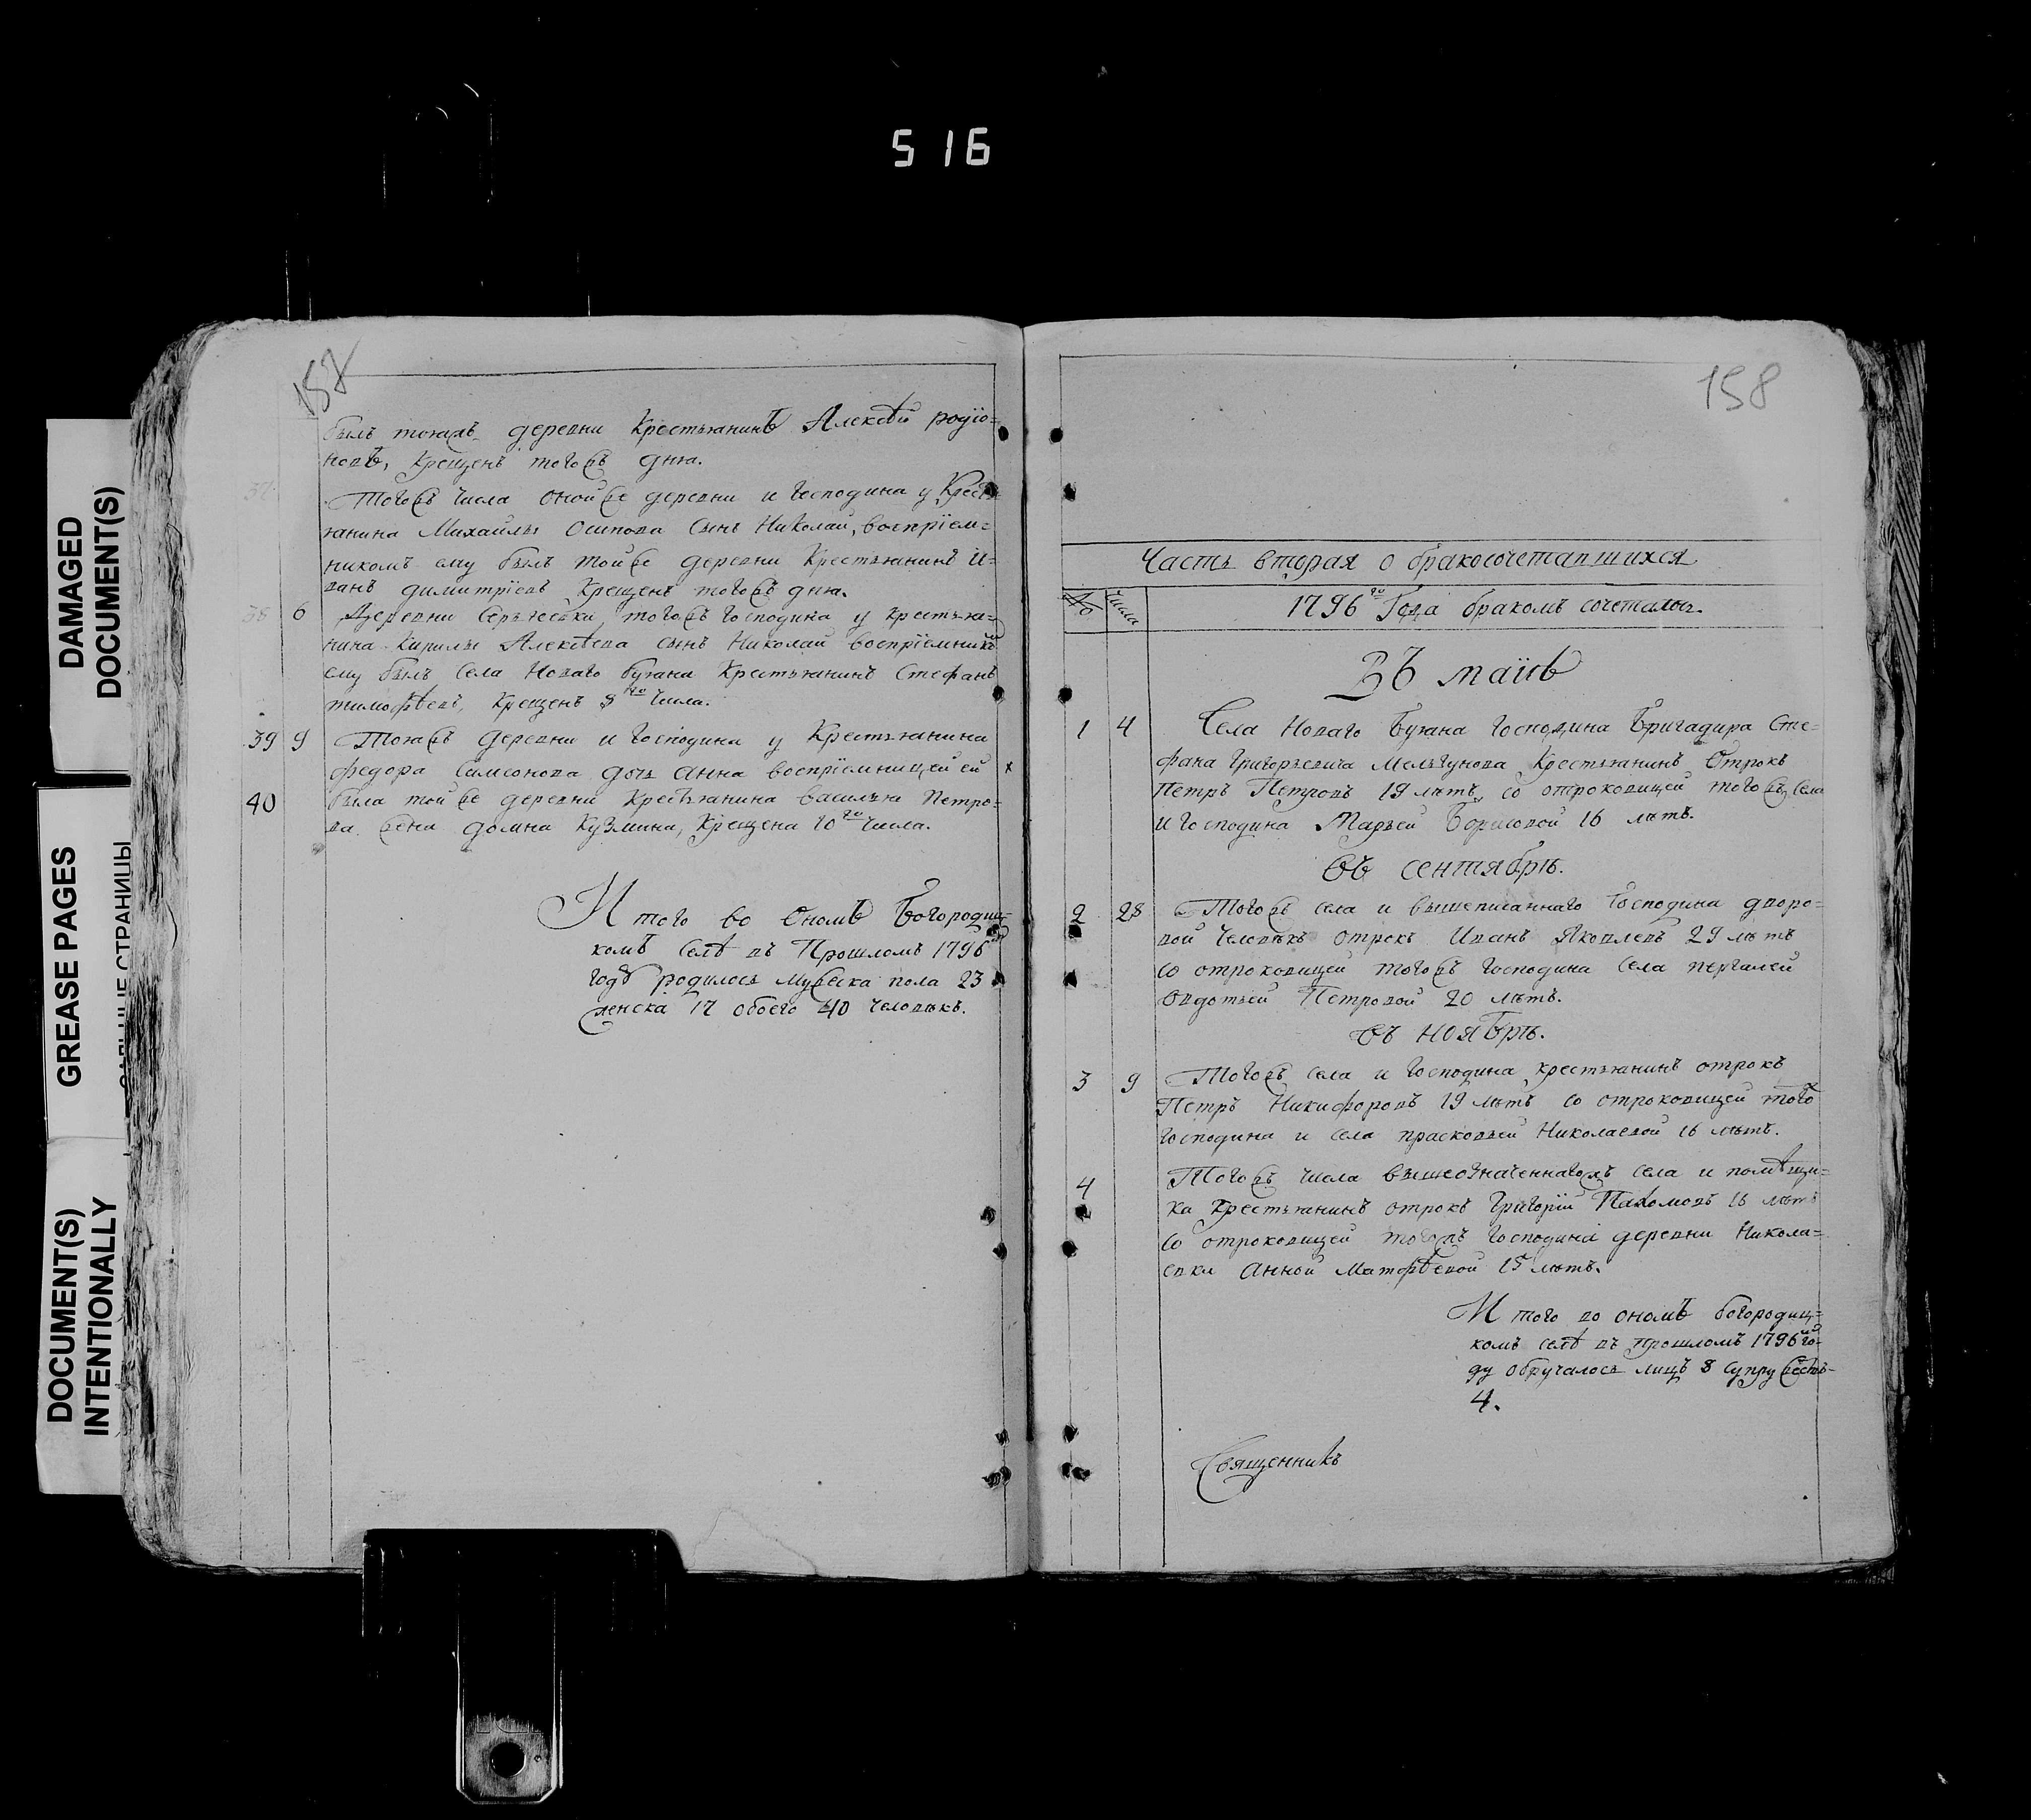 516
DAMAGED
DOCUMENT(S)
GREASE PAGES
СТРАНИЦЫ
DOCUMENT(S)
INTENTIONALLY
158
былъ тояжъ деревни Крестьянинъ Алексѣй родїо=
новъ, Крещенъ тогожъ дня.
37
Тогожъ числа оной же деревни и Господина у Кресть
янина Михайлы Осипова сынъ Николай, воспрїем=
никомъ ему былъ той же деревни Крестьянинъ И=
ванъ димитрїевъ Крещенъ тогожъ дня.
38 6 Деревни Сергѣевки, тогожъ Господина у крестья=
нина Кирилы Алексѣева сынъ Николай воспрїемникъ
ему былъ села Новаго буяна Крестьянинъ Стефанъ
тимофѣевъ, Крещенъ 8го числа.
39 9 Тояжъ деревни и Господина у Крестьянина
федора Симеонова дочь анна воспрїемницей ей
40 была той же деревни крестьянина василья Петро=
ва жена домна Кузмина, Крещена 10го числа.
И того во ономъ богородиц=
комъ селѣ въ Прошломъ 1796мъ
годѣ родилось мужеска пола 23
женска 17 обоего 40 человѣкъ.
158
Часть вторая о бракосочетавшихся
№ числа 1796го Года бракомъ сочетались.
Въ маїѣ
1 4 Села Новаго Буяна Господина Бригадира Сте=
фана Григорьевича Мельгунова Крестьянинъ Отрокъ
Петръ Петровъ 19 лѣтъ, со отроковицей тогожъ села
и Господина Марьей Борисовой 16 лѣтъ.
въ сентябрѣ.
2 28 Тогожъ села и вышеписаннаго Господина дворо=
вой человѣкъ отрокъ Иванъ Яковлевъ 29 лѣтъ
со отроковицей тогожъ Господина села
Овдотьей Петровой 20 лѣтъ.
въ ноябрѣ.
3 9 Тогожъ села и Господина крестьянинъ отрокъ
Петръ Никифоровъ 19 лѣтъ со отроковицей того
Господина и села прасковьей Николаевой 16 лѣтъ.
4 Тогожъ числа вышеозначеннагожъ села и помѣщи=
ка Крестьянинъ отрокъ Григорїй Пахомовъ 16 лѣтъ
со отроковицей тогожъ Господина деревни Никола=
евки Анной Матфѣевой 15 лѣтъ.
И того во ономъ богородиц=
комъ селѣ въ прошломъ 1796мъ го=
ду обручалось лицъ 8 супружествъ
4.
Священникъ